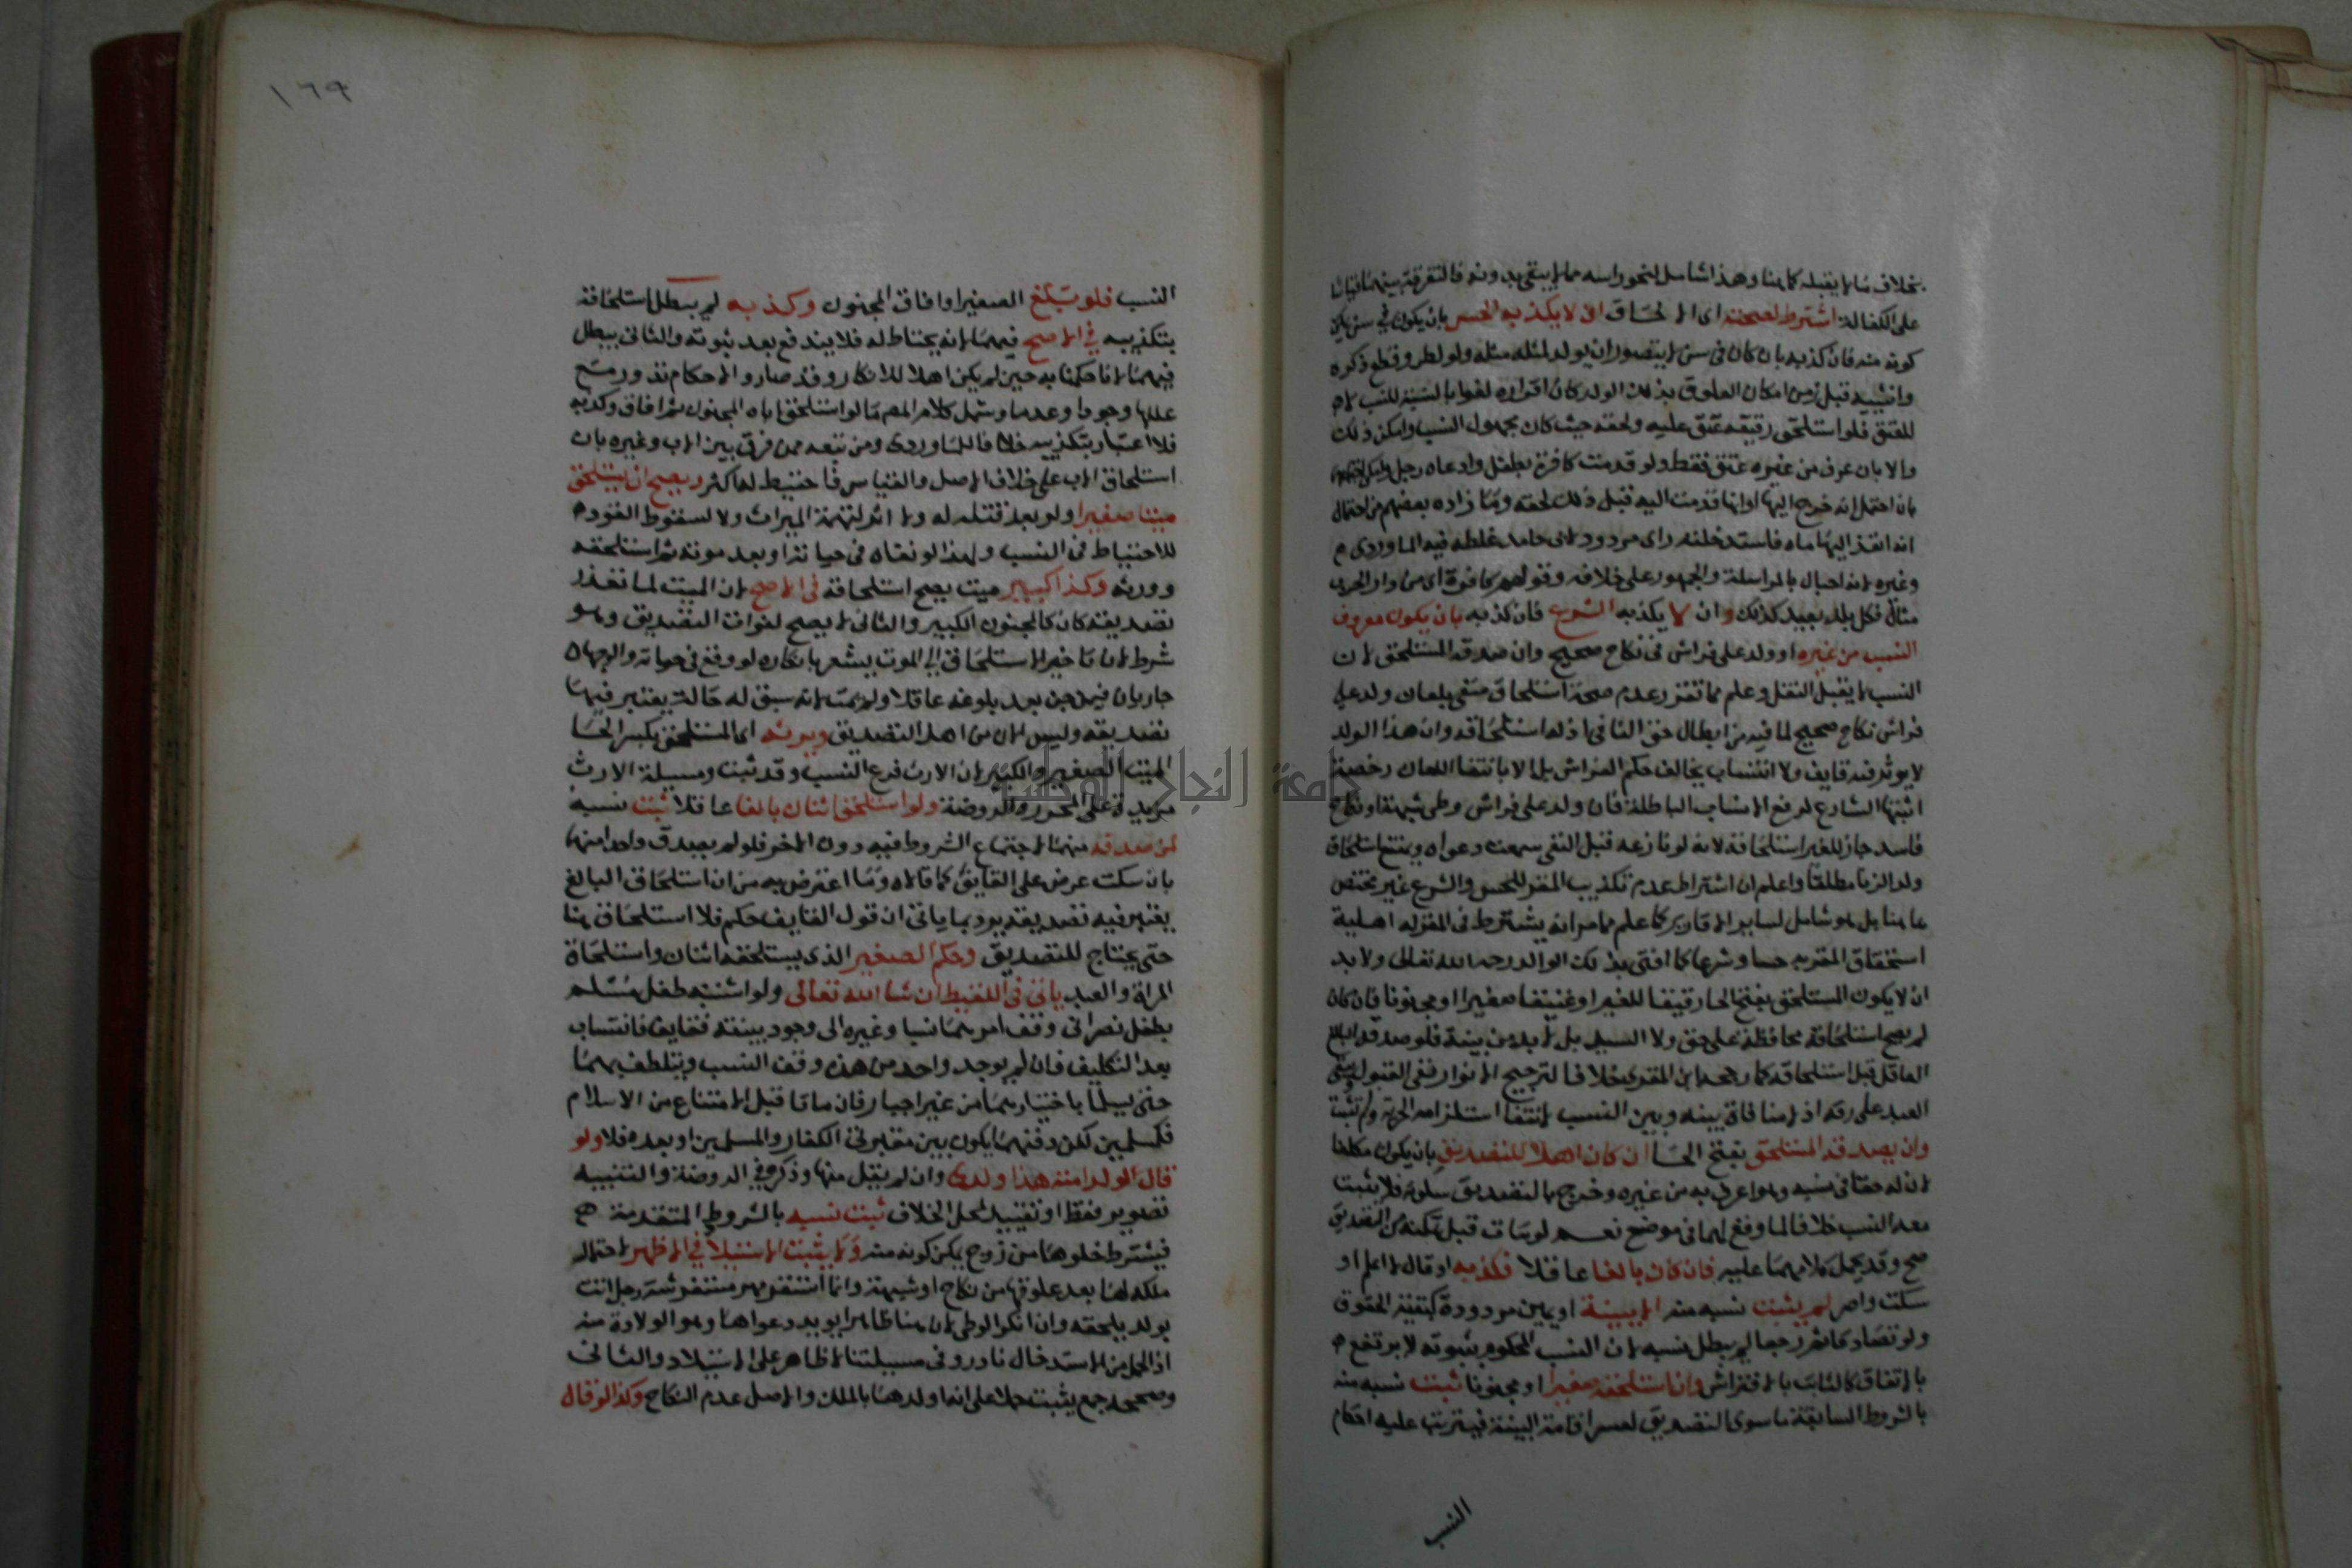 بخلاف ما لا يقبله كما هنا وهذا شامل لنحو راسه مما لا يبقى بدونه فالتفرقة بينهما قياسا
على الكفالة اشترط لصحته اى الالحاق ان لا يكذبه الحس بان يكون في سن يمكن
كونه منه فان كذبه بان كان فى سن لا يتصور ان يولد لمثله مثله ولو لطر وقطع ذكره
وانثييه قبل زمن امكان العلوق بذلك الولد كان اقراره لغوا بالنسبة للنسب لا
للعتق فلو استلحق رقيقه عتق عليه ولحقه حيث كان مجهول النسب وامكن ذلك
والا بان عرف من غيره عتق فقط ولو قدمت كافرة بطفل وادعاه رجل وامكن
بان احتمل انه خرج اليها او انها قدمت اليه قبل ذلك لحقه وما زاده بعضهم من احتمال
انه انفذ اليها ماه فاستدخلته راى مردود لابى حامد غلطه فيه الماوردى
وغيره لانه احبال بالمراسلة والجمهور على خلافه وقولهم كافرة اى من دار الحرب
مثال فكل بلد بعيد كذلك وان لا يكذبه الشرع فان كذبه بان يكون معروف
النسب من غيره او ولد على فراش فى نكاح صحيح وان صدقه المستلحق لان
النسب لا يقبل النقل وعلم مما تقرر عدم صحة استلحاق منفى بلعان ولد على
فراش نكاح صحيح لما فيه من ابطال حق النافى اذ له استلحاقه وان هذا الولد
لا يوثر فيه قايف ولا انتساب يخالف حكم الفراش بل لا انتفا اللعان رخصة
اثبتها الشارع لدفع الانساب الباطلة فان ولد على فراش وطى شبهة او نكاح
فاسد جاز للغير استلحاقه لانه لو نازعه قبل النفى سمعت دعواه ويمتنع استلحاق
ولد الزنا مطلقا واعلم ان اشتراط عدم تكذيب المقر للحس والشرع غير مختص
بما هنا بل هو شامل لساير الاقارير كما علم مما مر انه يشترط فى المقر له اهلية
استحقاق المقر به حسا وشرعا كما افتى بذلك الوالد رحمه الله تعالى ولا بد
ان لا يكون المستلحق بفتح الحا رقيقا للغير او عتيقا صغيرا او مجنونا فان كان
لم يصح استلحاقه محافظة على حق ولا السيد بل لا بد من بينة فلو صدقه البالغ
العاقل قبل استلحاقه كما رجحه ابن المقرى خلافا لترجيح الانوار ففى القبول ويبقى
العبد على رقه اذ لا منافاة بينه وبين النسب لانتفا استلزامه الحرية ولم تثبت
وان يصدقه المستلحق بفتح الحا ان كان اهلا للتصديق بان يكون مكلفا
لان له حقا فى نسبه وهو اعرف به من غيره وخرج بالتصديق سكوته فلا يثبت
معه النسب خلافا لما وقع لهما فى موضع نعم لو مات قبل تمكنه من التصديق
صح وقد يحمل كلامهما عليه فان كان بالغا عاقلا فكذبه او قال لا اعلم او
سكت واصر لم يثبت نسبه منه الا ببينة او يمين مردودة كبقية الحقوق
ولو تصادقا ثم رجعا لم يبطل نسبه لان النسب المحكوم بثبوته لا يرتفع
بالاتفاق كالثابت بالافتراش وان استلحق صغيرا او مجنونا ثبت نسبه منه
بالشروط السابقة ما سوى التصديق لعسر اقامة البينة فيترتب عليه احكام
النسب
١٦٩
النسب فلو بلغ الصغير او افاق المجنون وكذبه لم يبطل استلحاقه
بتكذيبه في الاصح فيهما لانه يحتاط له فلا يندفع بعد ثبوته والثانى يبطل
فيهما لانا حكمنا به حين لم يكن اهلا للانكار وقد صار والاحكام تدور مع
عللها وجودا وعدما وشمل كلام المصم ما لو استلحق اباه المجنون ثم افاق وكذبه
فلا اعتبار بتكذيبه خلافا للماوردى ومن تبعه ممن فرق بين الاب وغيره بان
استلحاق الاب على خلاف الاصل والقياس فاحتيط له اكثر ويصح ان يستلحق
ميتا صغيرا ولو بعد قتله له ولا اثر لتهمة الميراث ولا لسقوط القود
للاحتياط فى النسب ولهذا لو نفاه فى حياته او بعد موته ثم استلحقه
وورثه وكذا كبير ميت يصح استلحاقه فى الاصح لان الميت لما تعذر
تصديقه كان كالمجنون الكبير والثانى لا يصح لفوات التصديق وهو
شرط لان تاخير الاستلحاق الى الموت يشعر بانكاره لو وقع فى حياته والوجهان
جاريان فيمن جن بعد بلوغه عاقلا ولم يمت لانه سبق له حالة يعتبر فيها
تصديقه وليس الان من اهل التصديق ويرثه اى المستلحق بكسر الحا
الميت الصغير والكبير لان الارث فرع النسب وقد ثبت ومسيلة الارث
مزيدة على المحرر والروضة ولو استلحق اثنان بالغا عاقلا ثبت نسبه
لمن صدقه منهما لاجتماع الشروط فيه دون الاخر فلو لم يصدق واحدا منهما
بان سكت عرض على القايف كما قالاه وما اعترض به من ان استلحاق البالغ
يعتبر فيه تصديقه يرد بما ياتى ان قول القايف حكم فلا استلحاق هنا
حتى يحتاج للتصديق وحكم الصغير الذى يستلحقه اثنان واستلحاق
المراة والعبد ياتى فى اللقيط ان شا الله تعالى ولو اشتبه طفل مسلم
بطفل نصرانى وقف امرهما نسبا وغيره الى وجود بينة فقايف فانتساب
بعد التكليف فان لم يوجد واحد من هذه وقف النسب ويتلطف بهما
حتى يسلما باختيارهما من غير اجبار فان ماتا قبل الامتناع من الاسلام
فكمسلمين لكن دفنهما يكون بين مقبرتى الكفار والمسلمين او بعده فلا ولو
قال لولد امته هذا ولدى وان لم يقل منها وذكره في الروضة والتنبيه
تصوير فقط او تقييد لمحل الخلاف ثبت نسبه بالشروط المتقدمة
فيشترط خلوها من زوج يمكن كونه منه ولا يثبت الاستيلاد في الاظهر لاحتمال
ملكه لها بعد علوقها من نكاح او شبهة وانما استقر مهر مستفرشة رجل اتت
بولد يلحقه وان انكر الوطى لان هنا ظاهرا يويد دعواها وهو الولادة منه
اذ الحمل من الاستدخال نادر وفى مسيلتنا لا ظاهر على الاستيلاد والثانى
وصححه جمع يثبت حملا على انه اولدها بالملك والاصل عدم النكاح وكذا لو قال
جامعة النجاح الوطنية